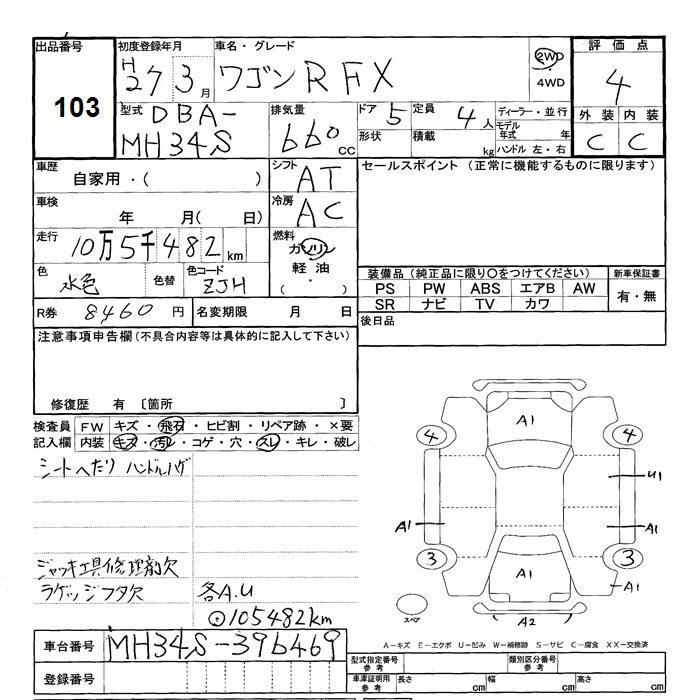 出品番号
103
初度登録年月
H27 3月
車名・グレード
ワゴンR FX
2WD
4WD
評価点
4
外装 内装
C C
型式 DBA-
MH34S
排気量
660 CC
ドア 5
定員 4人
形状
積載 kg
ディーラー・並行
モデル年式 年
ハンドル 左・右
車歴
自家用・( )
シフト
AT
セールスポイント (正常に機能するものに限ります)
車検
年 月( 日)
冷房
AC
走行
10万5千482km
燃料
ガソリン
軽油
( ・ )
色
水色
色替
色コード
ZJH
装備品(純正品に限り〇をつけてください)
新車保証書
PS PW ABS エアB AW
有・無
SR ナビ TV カワ
R券 8460 円
名変期限 月 日
後日品
注意事項申告欄(不具合内容等は具体的に記入して下さい)
修復歴 有 〔箇所 〕
検査員 FW キズ・飛石・ヒビ割・リペア跡・×要
記入欄 内装 キズ・汚レ・コゲ・穴・スレ・キレ・破レ
シートヘたり ハンドルハゲ
ジャッキ工具修理剤欠
ラゲッジフタ欠
各A.U
105482km
A1
4 4
U1
A1 A1
3 3
A1
A1
スペア
A2
A-キズ E-エクボ U-凹み W-補修跡 S-サビ C-腐食 XX-交換済
車台番号 MH34S-396469
型式指定番号 参考
類別区分番号 参考
登録番号
車庫証明用 参考
長さ cm
幅 cm
高さ cm